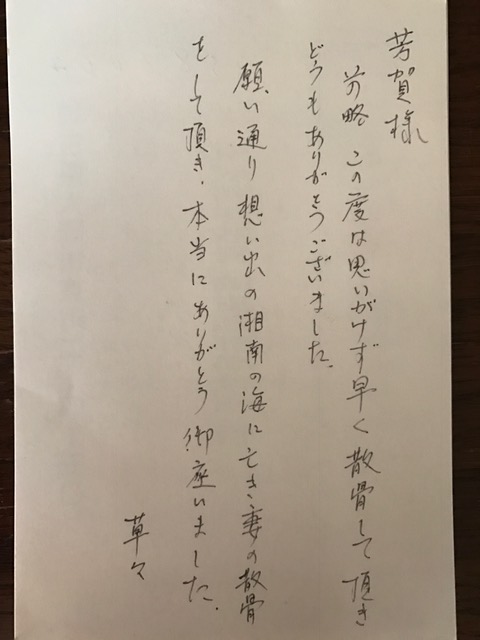 芳賀様
前略 この度は思いがけず早く散骨して頂き
どうもありがとうございました。
願い通り想い出の湘南の海に亡き妻の散骨
をして頂き、本当にありがとう御座いました。
草々